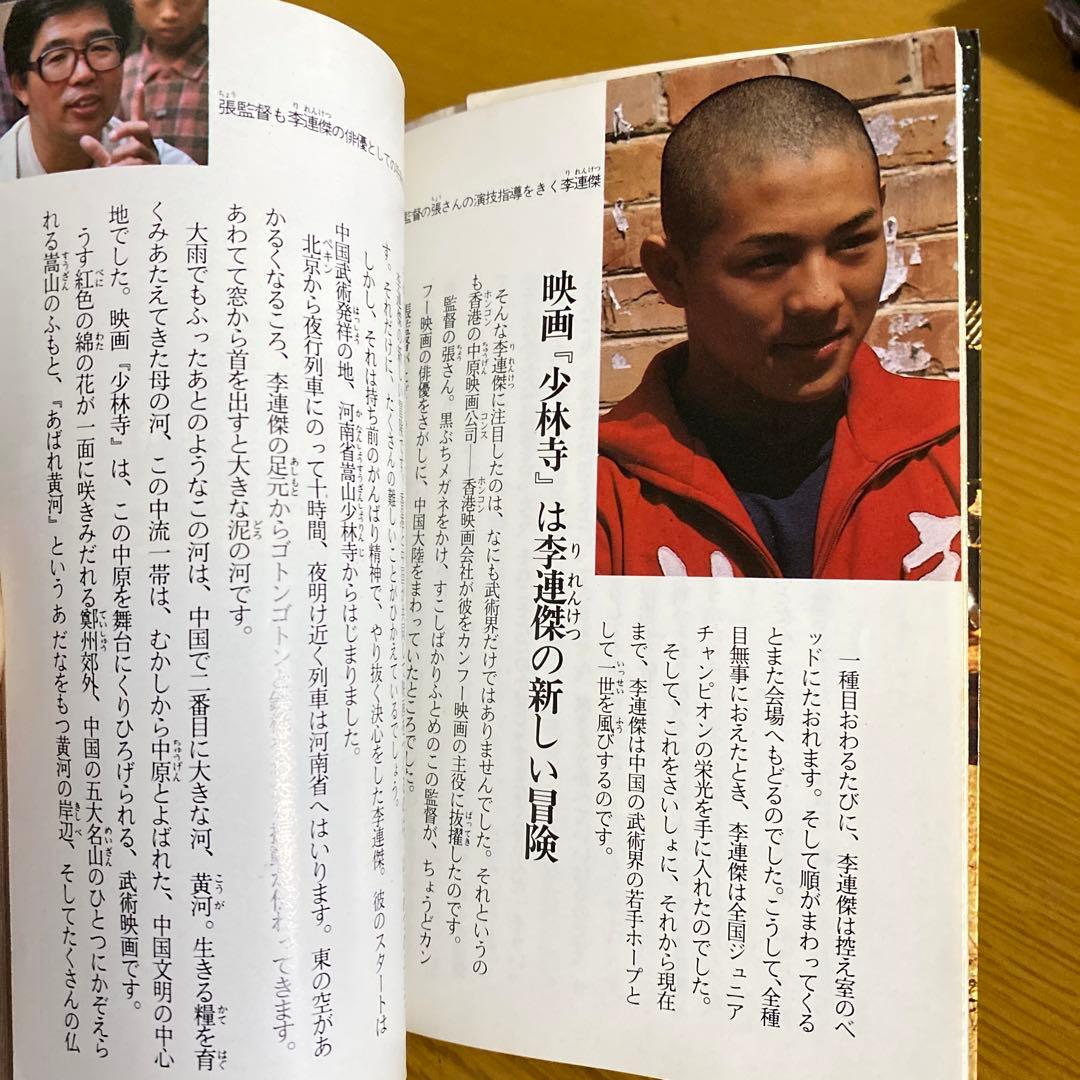 一種目おわるたびに、李連傑は控え室のべ
ッドにたおれます。そして順がまわってくる
とまた会場へもどるのでした。こうして、全種
目無事におえたとき、李連傑は全国ジュニア
チャンピオンの栄光を手に入れたのでした。
そして、これをさいしょに、それから現在
まで、李連傑は中国の武術界の若手ホープと
して一世を風びするのです。
監督の張さんの演技指導をきく李連傑
映画『少林寺』は李連傑の新しい冒険
そんな李連傑に注目したのは、なにも武術界だけではありませんでした。それというの
も香港の中原映画公司――香港映画会社が彼をカンフー映画の主役に抜擢したのです。
監督の張さん。黒ぶちメガネをかけ、すこしばかりふとめのこの監督が、ちょうどカン
フー映画の俳優をさがしに、中国大陸をまわっていたところでした。
張監督も李連傑の俳優としての
す。それだけに、たくさんの難しいことがひかえているでしょう。
しかし、それは持ち前のがんばり精神で、やり抜く決心をした李連傑。彼のスタートは
中国武術発祥の地、河南省嵩山少林寺からはじまりました。
北京から夜行列車にのって十時間、夜明け近く列車は河南省へはいります。東の空があ
かるくなるころ、李連傑の足元からゴトンゴトンと てきます。
あわてて窓から首を出すと大きな泥の河です。
大雨でもふったあとのようなこの河は、中国で二番目に大きな河、黄河。生きる糧を育
くみあたえてきた母の河、この中流一帯は、むかしから中原とよばれた、中国文明の中心
地でした。映画『少林寺』は、この中原を舞台にくりひろげられる、武術映画です。
うす紅色の綿の花が一面に咲きみだれる鄭州郊外、中国の五大名山のひとつにかぞえら
れる嵩山のふもと、『あばれ黄河』というあだなをもつ黄河の岸辺、そしてたくさんの仏